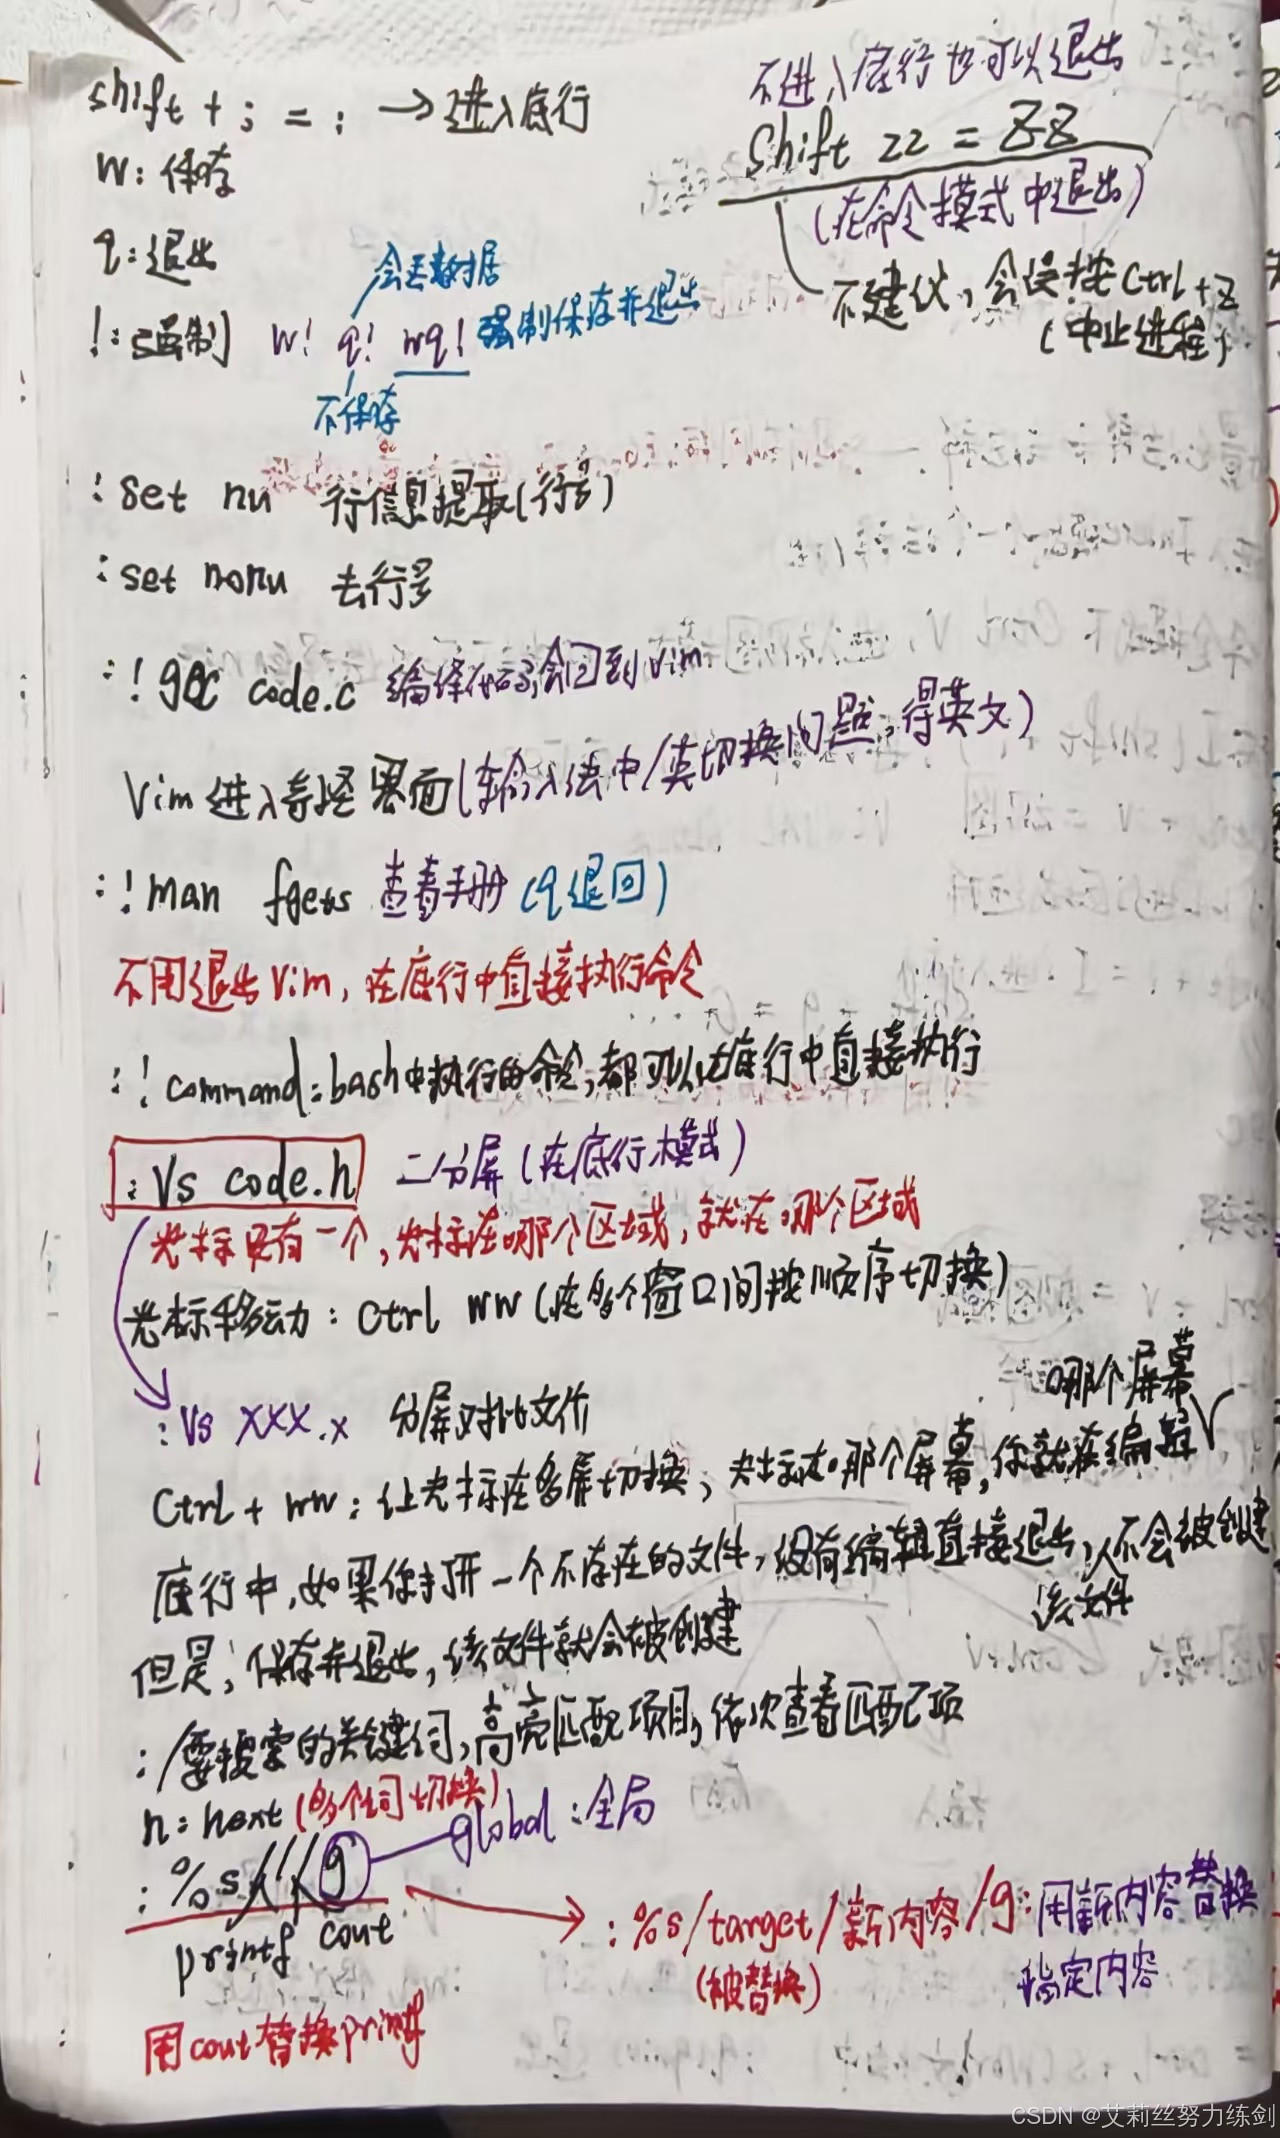 shift + ; = : → 进入底行
不进入底行也可以退出
Shift zz = ZZ
(在命令模式中退出)
不建议,会误按Ctrl+Z
(中止进程)
w: 保存
q: 退出
!: 强制 w! q! wq! 强制保存并退出
会丢数据
不保存
: set nu 行信息提取(行号)
: set nonu 去行号
: ! gcc code.c 编译代码,会回到vim
Vim进入奇怪界面(输入法中/英切换问题,得英文)
: ! man fgets 查看手册 (q退回)
不用退出Vim, 在底行中直接执行命令
: ! command: bash中执行的命令,都可以在底行中直接执行
: Vs code.h 二分屏(在底行模式)
光标只有一个,光标在哪个区域,就在哪个区域
光标移动: Ctrl ww (在多个窗口间按顺序切换)
: Vs xxx.x 分屏对比文件
哪个屏幕
Ctrl + ww: 让光标在多屏切换, 光标在哪个屏幕,你就在编辑
底行中,如果你打开一个不存在的文件,没有编辑直接退出,不会被创建
该文件
但是,保存并退出,该文件就会被创建
: /要搜索的关键词,高亮匹配项目,依次查看匹配项
n: next (多个词切换)
global: 全局
: %s///g
printf cout
: %s/target/新内容/g: 用新内容替换
(被替换)
指定内容
用cout替换printf
CSDN @艾莉丝努力练剑